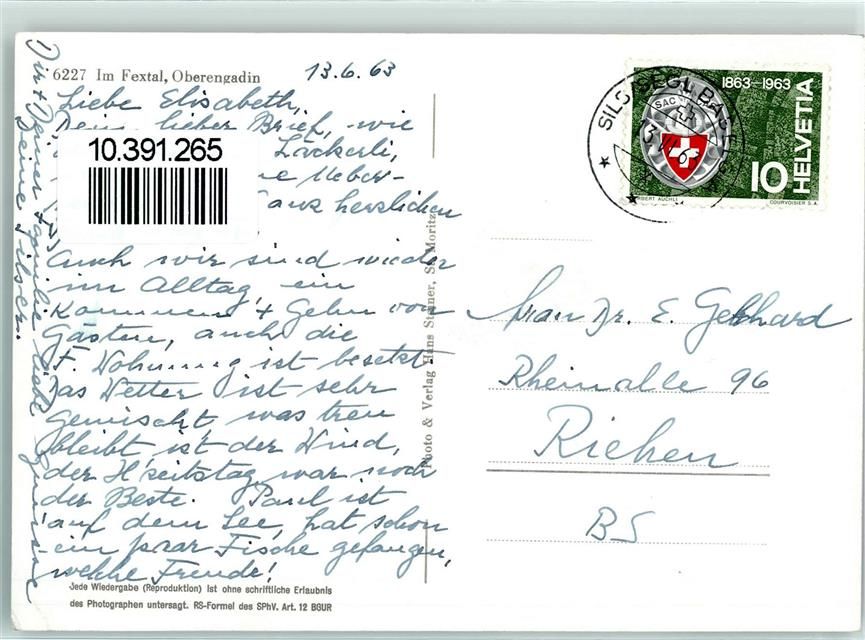 6227 Im Fextal, Oberengadin
13.6.63
Liebe Elisabeth,
Dein lieber Brief, wie
Läckerli,
ne Ueber-
ganz herzlichen
Auch wir sind wieder
im Alltag, ein
Kommen + Gehn von
Gästen, auch die
F. Wohnung ist besetzt.
Das Wetter ist sehr
gemischt, was treu
bleibt, ist der Wind,
der H'zeitstag war noch
der Beste. Paul ist
auf dem See, hat schon
ein paar Fische gefangen,
welche Freude!
Dir + Deiner Familie liebe Grüsse
Deine
10.391.265
Jede Wiedergabe (Reproduktion) ist ohne schriftliche Erlaubnis
des Photographen untersagt. RS-Formel des SPhV. Art. 12 BGUR
Photo & Verlag Hans Steiner, St. Moritz
SILS-SEGL BASELGIA
13.VI.63
1863–1963
SAC
HELVETIA
10
HERBERT AUCHLI
COURVOISIER S.A.
Frau Dr. E. Gebhard
Rheinalle 96
Riehen
BS